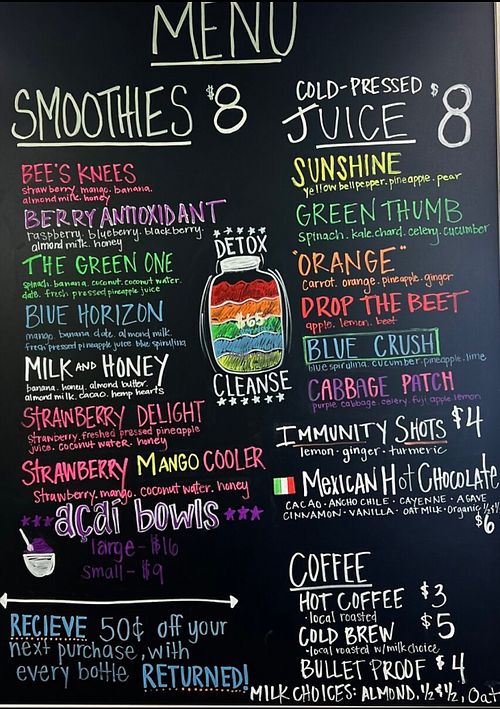 MENU
SMOOTHIES $8
BEE'S KNEES
strawberry. mango. banana.
almond milk. honey
BERRY ANTIOXIDANT
raspberry. blueberry. blackberry.
almond milk. honey
THE GREEN ONE
spinach. banana. coconut. coconut water.
date. fresh pressed pineapple juice
BLUE HORIZON
mango. banana. date. almond milk.
fresh pressed pineapple juice blue spirulina
MILK AND HONEY
banana. honey. almond butter.
almond milk. cacao. hemp hearts
STRAWBERRY DELIGHT
strawberry. freshed pressed pineapple
juice. coconut water. honey
STRAWBERRY MANGO COOLER
Strawberry. mango. coconut water. honey
açaí bowls
large - $16
small - $9
RECIEVE 50¢ off your
next purchase, with
every bottle RETURNED!
DETOX
$65
CLEANSE
COLD-PRESSED
JUICE $8
SUNSHINE
yellow bell pepper. pineapple. pear
GREEN THUMB
spinach. kale. chard. celery. cucumber
"ORANGE"
carrot. orange. pineapple. ginger
DROP THE BEET
apple. lemon. beet
BLUE CRUSH
blue spirulina. cucumber. pineapple. lime
CABBAGE PATCH
purple cabbage. celery. fuji apple lemon
IMMUNITY SHOTS $4
lemon - ginger - turmeric
MEXICAN HOT CHOCOLATE
CACAO · ANCHO CHILE · CAYENNE · AGAVE
CINNAMON · VANILLA · OAT MILK · Organic ½ & ½
$6
COFFEE
HOT COFFEE $3
· local roasted
COLD BREW $5
· local roasted w/milk choice
BULLET PROOF $4
MILK CHOICES: ALMOND, ½ & ½, Oat